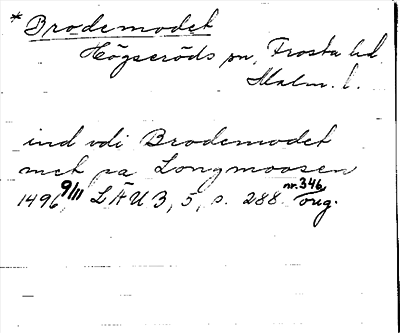 * Brodemodet
Högseröds sn, Frosta hd
Malm. l.
ind vdi Brodemodet
met pa Longmoosen
1496 9/11 LÄUB, 5, s. 288 nr. 346 orig.